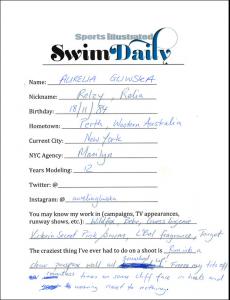 Sports Illustrated
SwimDaily
Name: AURELIA GLIWSKA
Nickname: Relzy, Relia
Birthday: 18/11/84
Hometown: Perth, Western Australia
Current City: New York
NYC Agency: Marilyn
Years Modeling: 12
Twitter: @
Instagram: @ aureliagliwska
You may know my work in (campaigns, TV appearances,
runway shows, etc.): Wildfox, Bebe, Guess lingerie
Victoria Secret Pink Swims, L'Bel Fragrance, Target
The craziest thing I've ever had to do on a shoot is
down wall Freeze my tits off
countless times on some cliff face in heels and
wearing next to nothing.